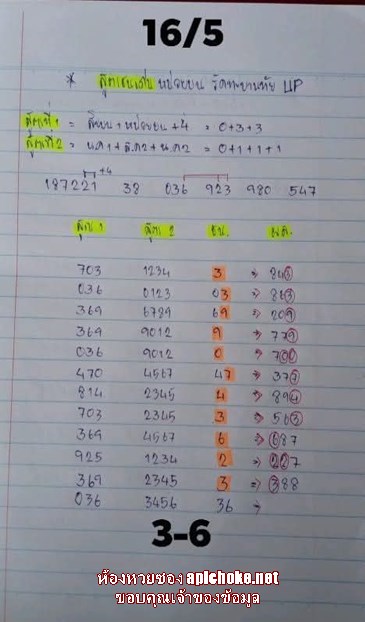 16/5
* สูตรเด่นบน หน่วยบน รัฐบาลไทย UP
สูตรที่1 = สิบบน+หน่วยบน+4 = 0+3+3
สูตรที่2 = = 0+1+1+1
+4
187221 38 036 923 980 547
สูตร 1 สูตร 2 ชน. ผล.
703 1234 3 → 843
036 0123 03 → 863
369 6789 69 → 209
369 9012 9 → 779
036 9012 0 → 700
470 4567 47 → 377
814 2345 4 → 894
703 2345 3 → 563
369 4567 6 → 687
925 1234 2 → 227
369 2345 3 → 388
036 3456 36 →
3-6
ห้องหวยซอง apichoke.net
ขอบคุณเจ้าของข้อมูล